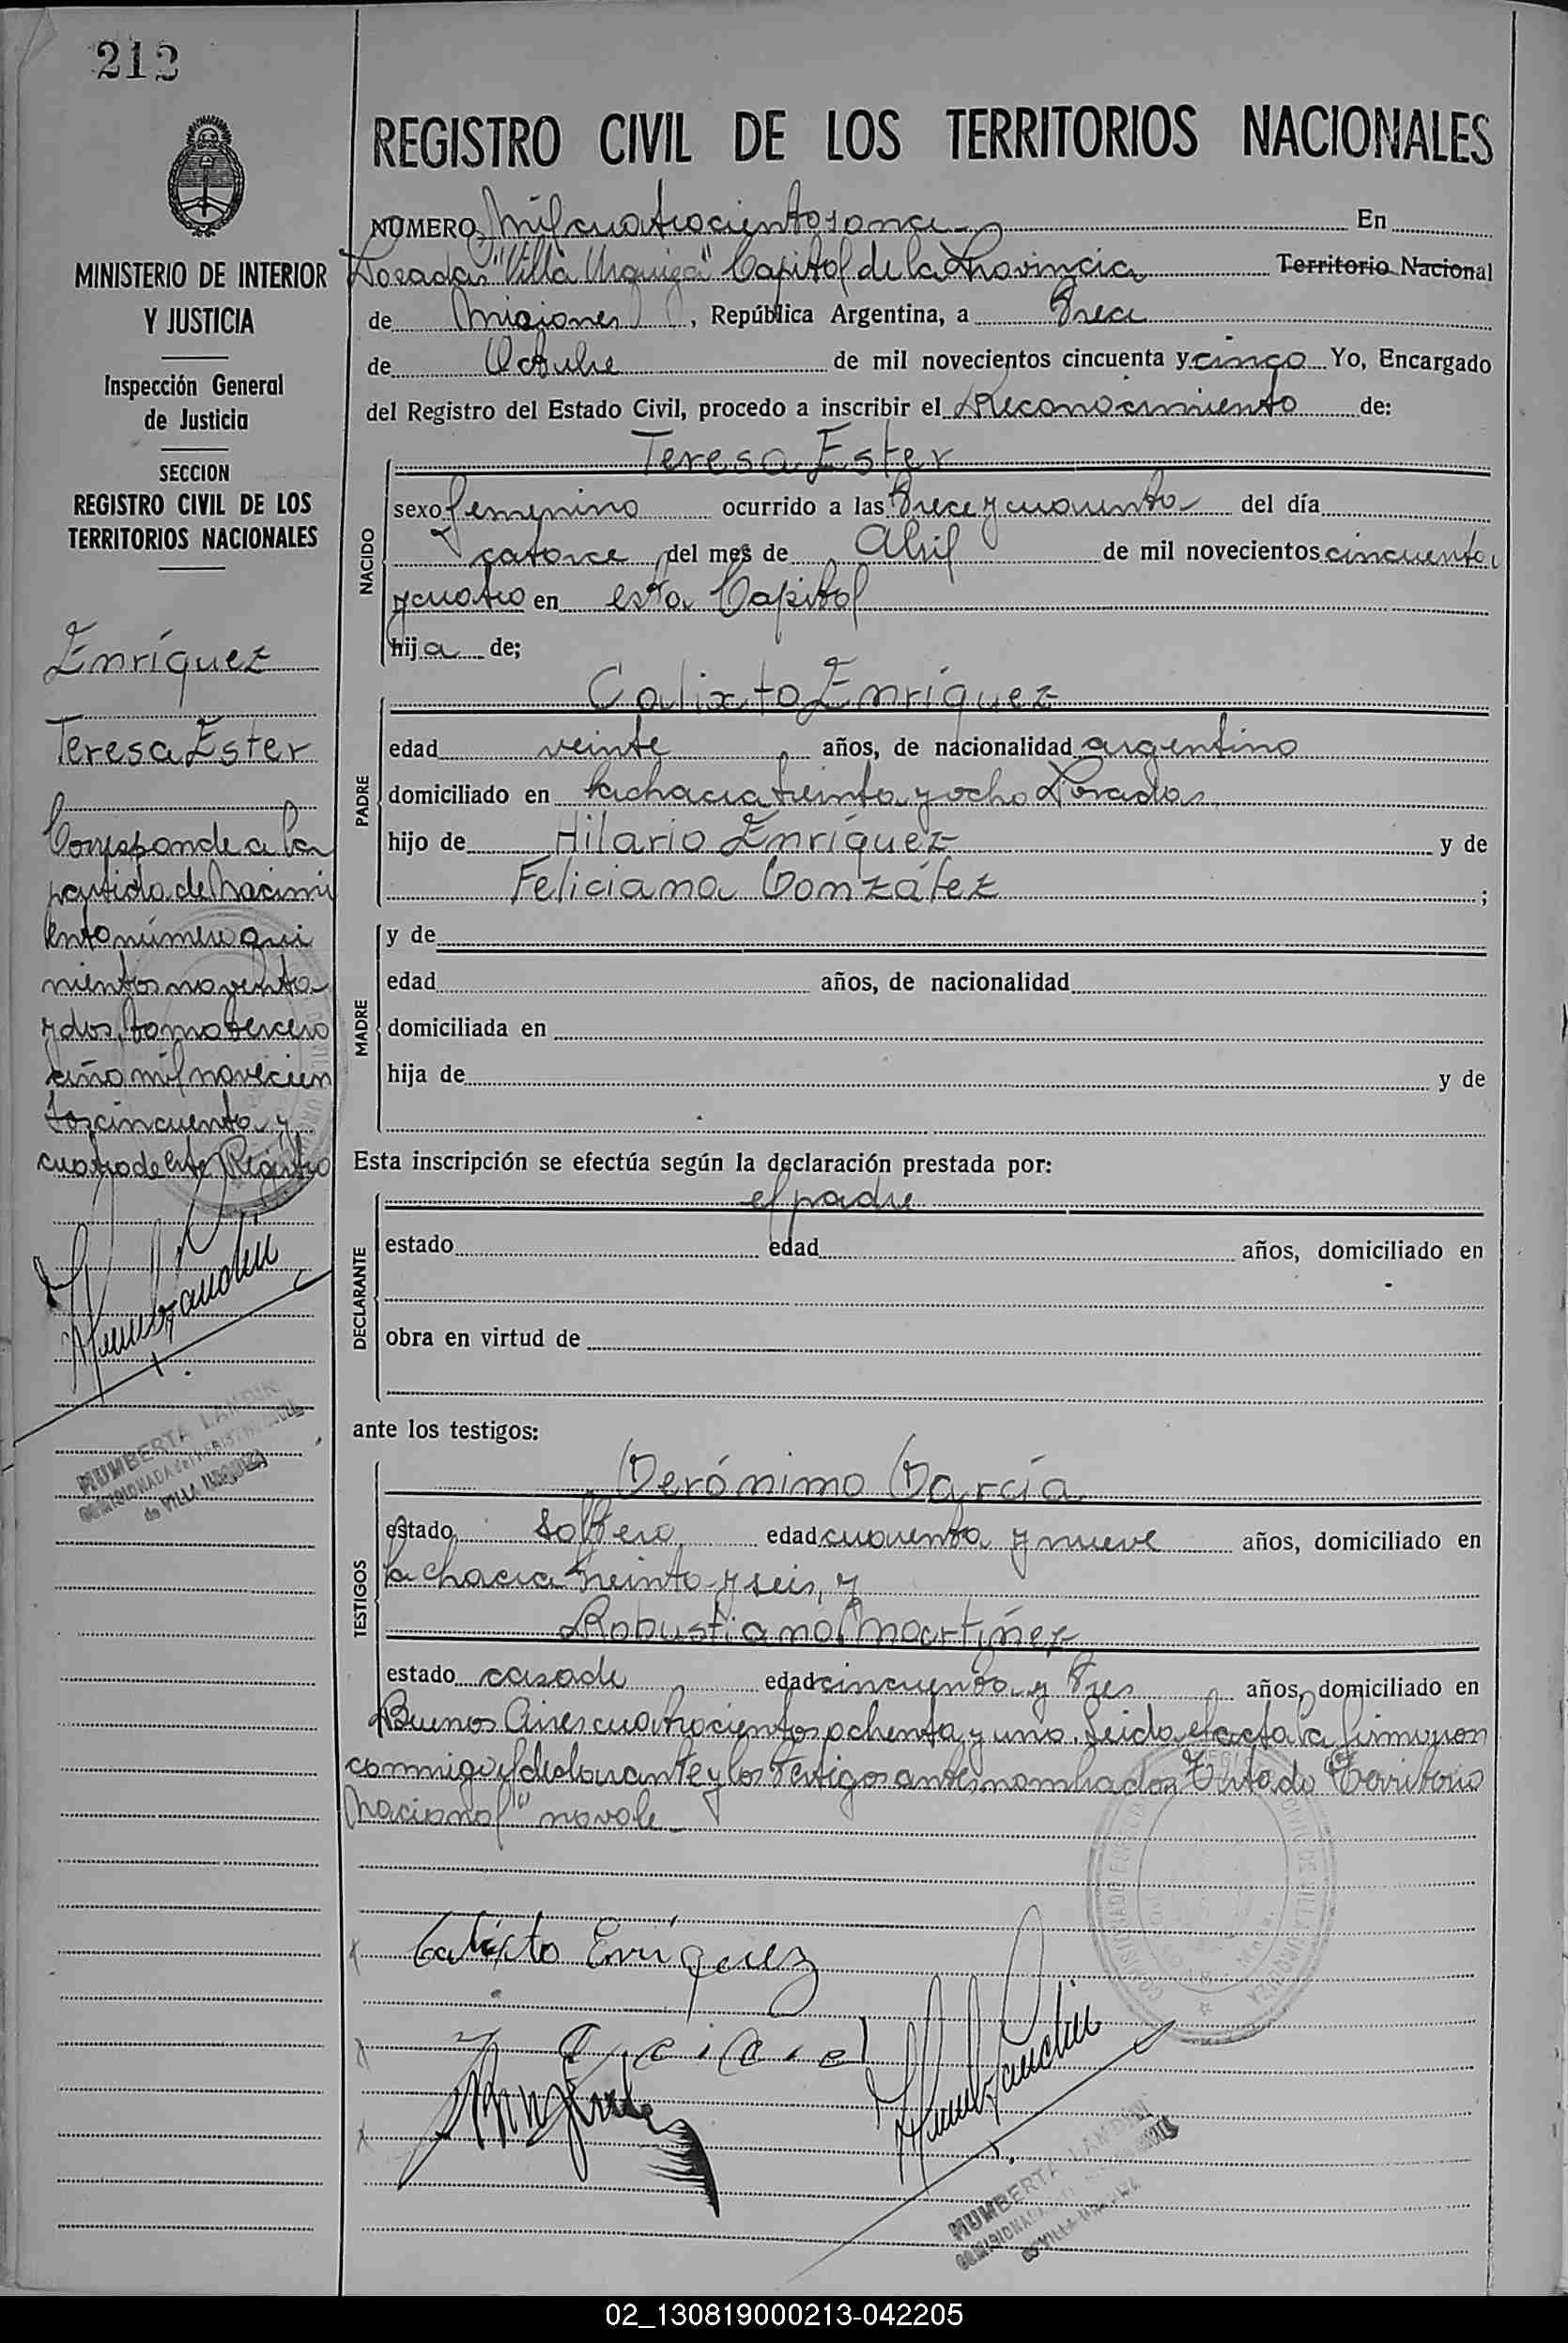 212
MINISTERIO DE INTERIOR
Y JUSTICIA
Inspección General
de Justicia
SECCION
REGISTRO CIVIL DE LOS
TERRITORIOS NACIONALES
Enríquez
Teresa Ester
Corresponde a la
partida de Nacimi
ento número qui
nientos noventa
y dos, tomo tercero
año mil novecien
tos cincuenta y
cuatro de este Registro
HUMBERTA LANDIN
COMISIONADA del REGISTRO CIVIL
de VILLA URQUIZA
REGISTRO CIVIL DE LOS TERRITORIOS NACIONALES
NUMERO Mil cuatrocientos once En
Posadas "Villa Urquiza" Capital de la Provincia Territorio Nacional
de Misiones, República Argentina, a trece
de Octubre de mil novecientos cincuenta y cinco Yo, Encargado
del Registro del Estado Civil, procedo a inscribir el Reconocimiento de:
NACIDO
Teresa Ester
sexo femenino ocurrido a las trece y cuarenta del día
catorce del mes de Abril de mil novecientos cincuenta
y cuatro en esta Capital
hija de;
PADRE
Calixto Enríquez
edad veinte años, de nacionalidad argentino
domiciliado en la chacra treinta y ocho Posadas
hijo de Hilario Enríquez y de
Feliciana González ;
MADRE
y de
edad años, de nacionalidad
domiciliada en
hija de y de
Esta inscripción se efectúa según la declaración prestada por:
DECLARANTE
el padre
estado edad años, domiciliado en
obra en virtud de
ante los testigos:
TESTIGOS
Gerónimo García
estado soltero edad cuarenta y nueve años, domiciliado en
la chacra treinta y seis, y
Robustiano Martínez
estado casado edad cincuenta y tres años, domiciliado en
Buenos Aires cuatrocientos ochenta y uno. Leida el acta la firmaron
conmigo el declarante y los testigos antes nombrados Testado "Territorio
Nacional" no vale
Calixto Enriquez
HUMBERTA LANDIN
COMISIONADA
de VILLA URQUIZA
02_130819000213-042205